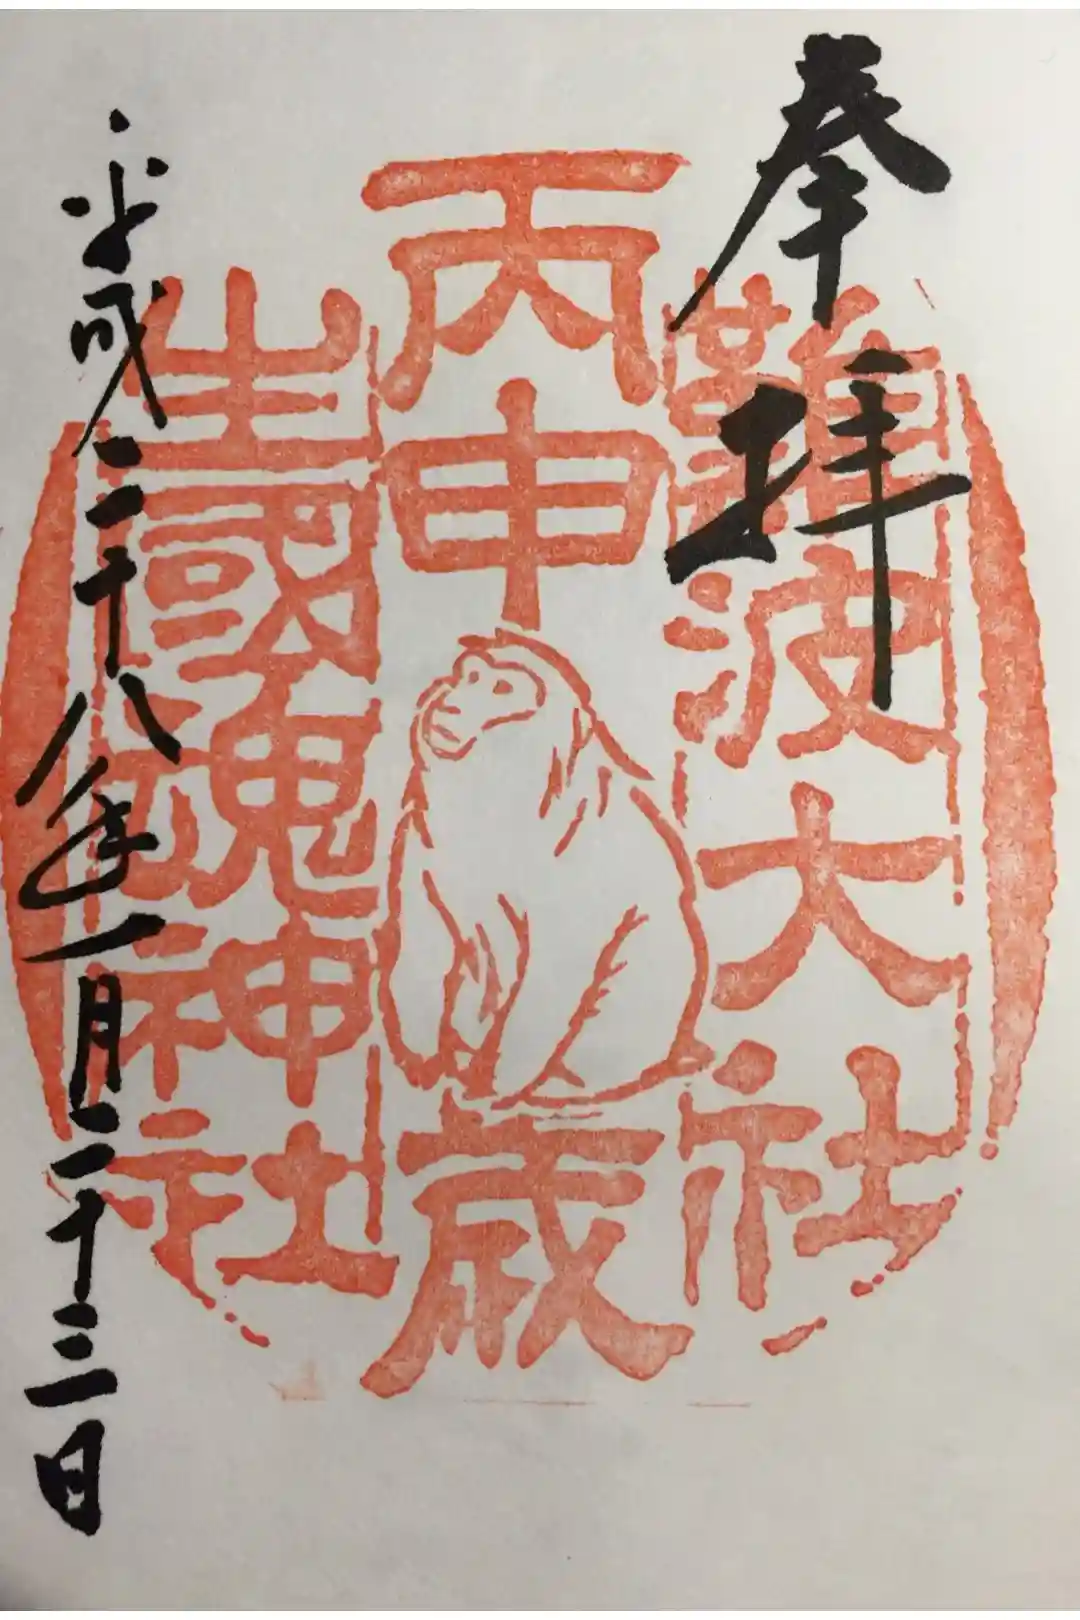 奉拝
難波大社
丙申歳
生國魂神社
平成二十八年一月二十三日